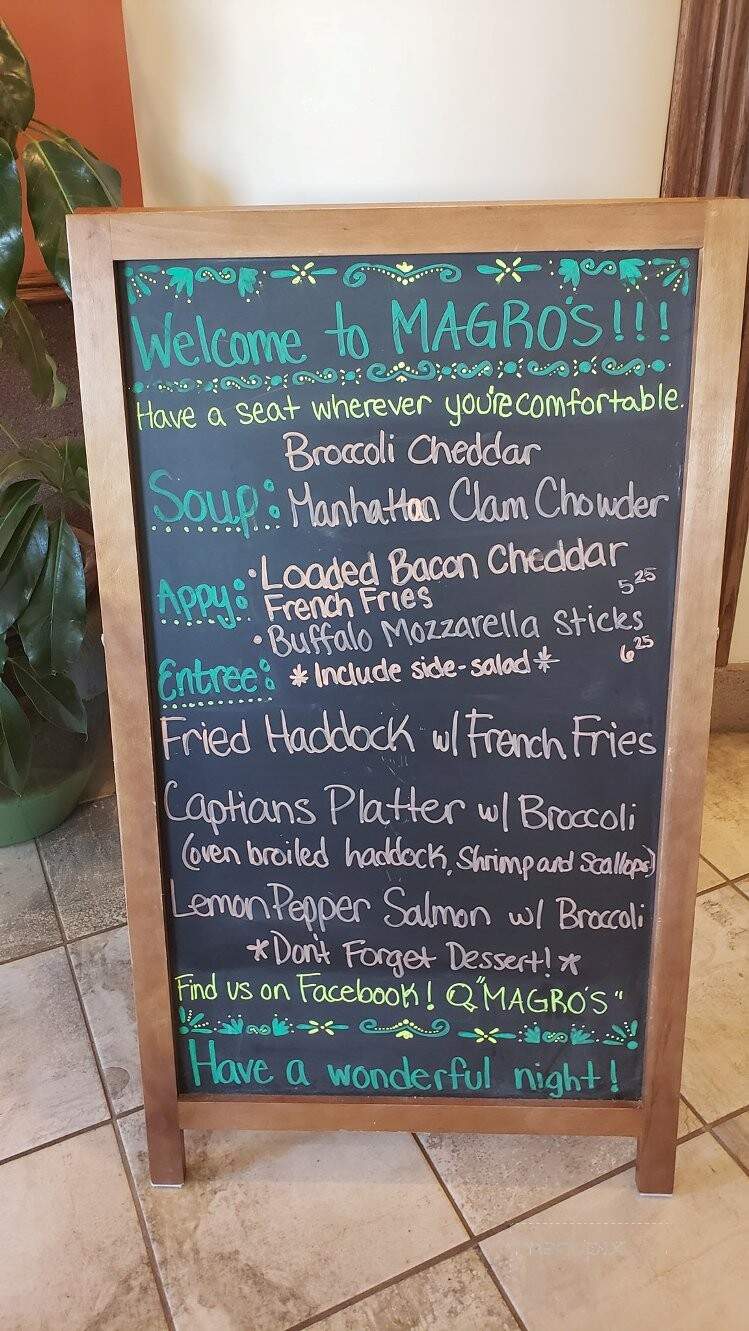 Welcome to MAGRO'S!!!
Have a seat wherever you're comfortable.
Broccoli Cheddar
Soup: Manhattan Clam Chowder
Appy: •Loaded Bacon Cheddar
French Fries 5 25
•Buffalo Mozzarella Sticks
6 25
Entree: *Include side-salad*
Fried Haddock w/ French Fries
Captians Platter w/ Broccoli
(oven broiled haddock, Shrimp and Scallops)
Lemon Pepper Salmon w/ Broccoli
*Don't Forget Dessert!*
Find us on Facebook! Q "MAGRO'S"
Have a wonderful night!